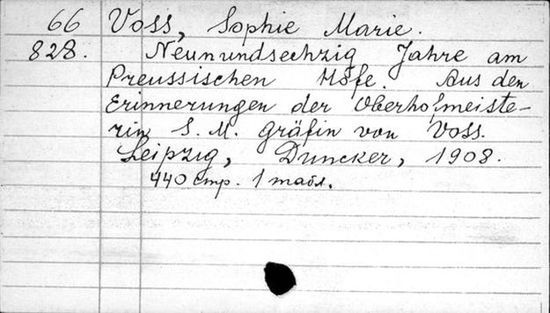 66 Voss, Sophie Marie.
828. Neunundsechzig Jahre am
Preussischen Hofe. Aus den
Erinnerungen der Oberhofmeiste-
rin S. M. Gräfin von Voss.
Leipzig, Duncker, 1908.
440 стр. 1 табл.